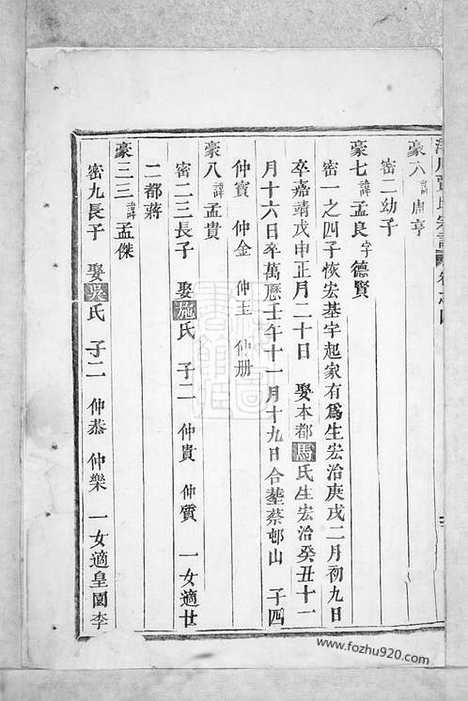 豪六諱庸亨
密二幼子
豪七諱孟良字德賢
密一之四子恢宏基宇起家有爲生宏治庚戌二月初九日
卒嘉靖戊申正月二十日　娶本都馬氏生宏治癸丑十一
月十六日卒萬曆壬午十一月十九日合塟蔡邨山　子四
仲寳　仲金　仲玉　仲册
豪八諱孟貴
密二三長子　娶施氏　子二　仲貴　仲質　一女適廿
二都蔣
豪二三諱孟傑
密九長子　娶吳氏　子二　仲恭　仲樂　一女適皇園李
www.fozhu920.com